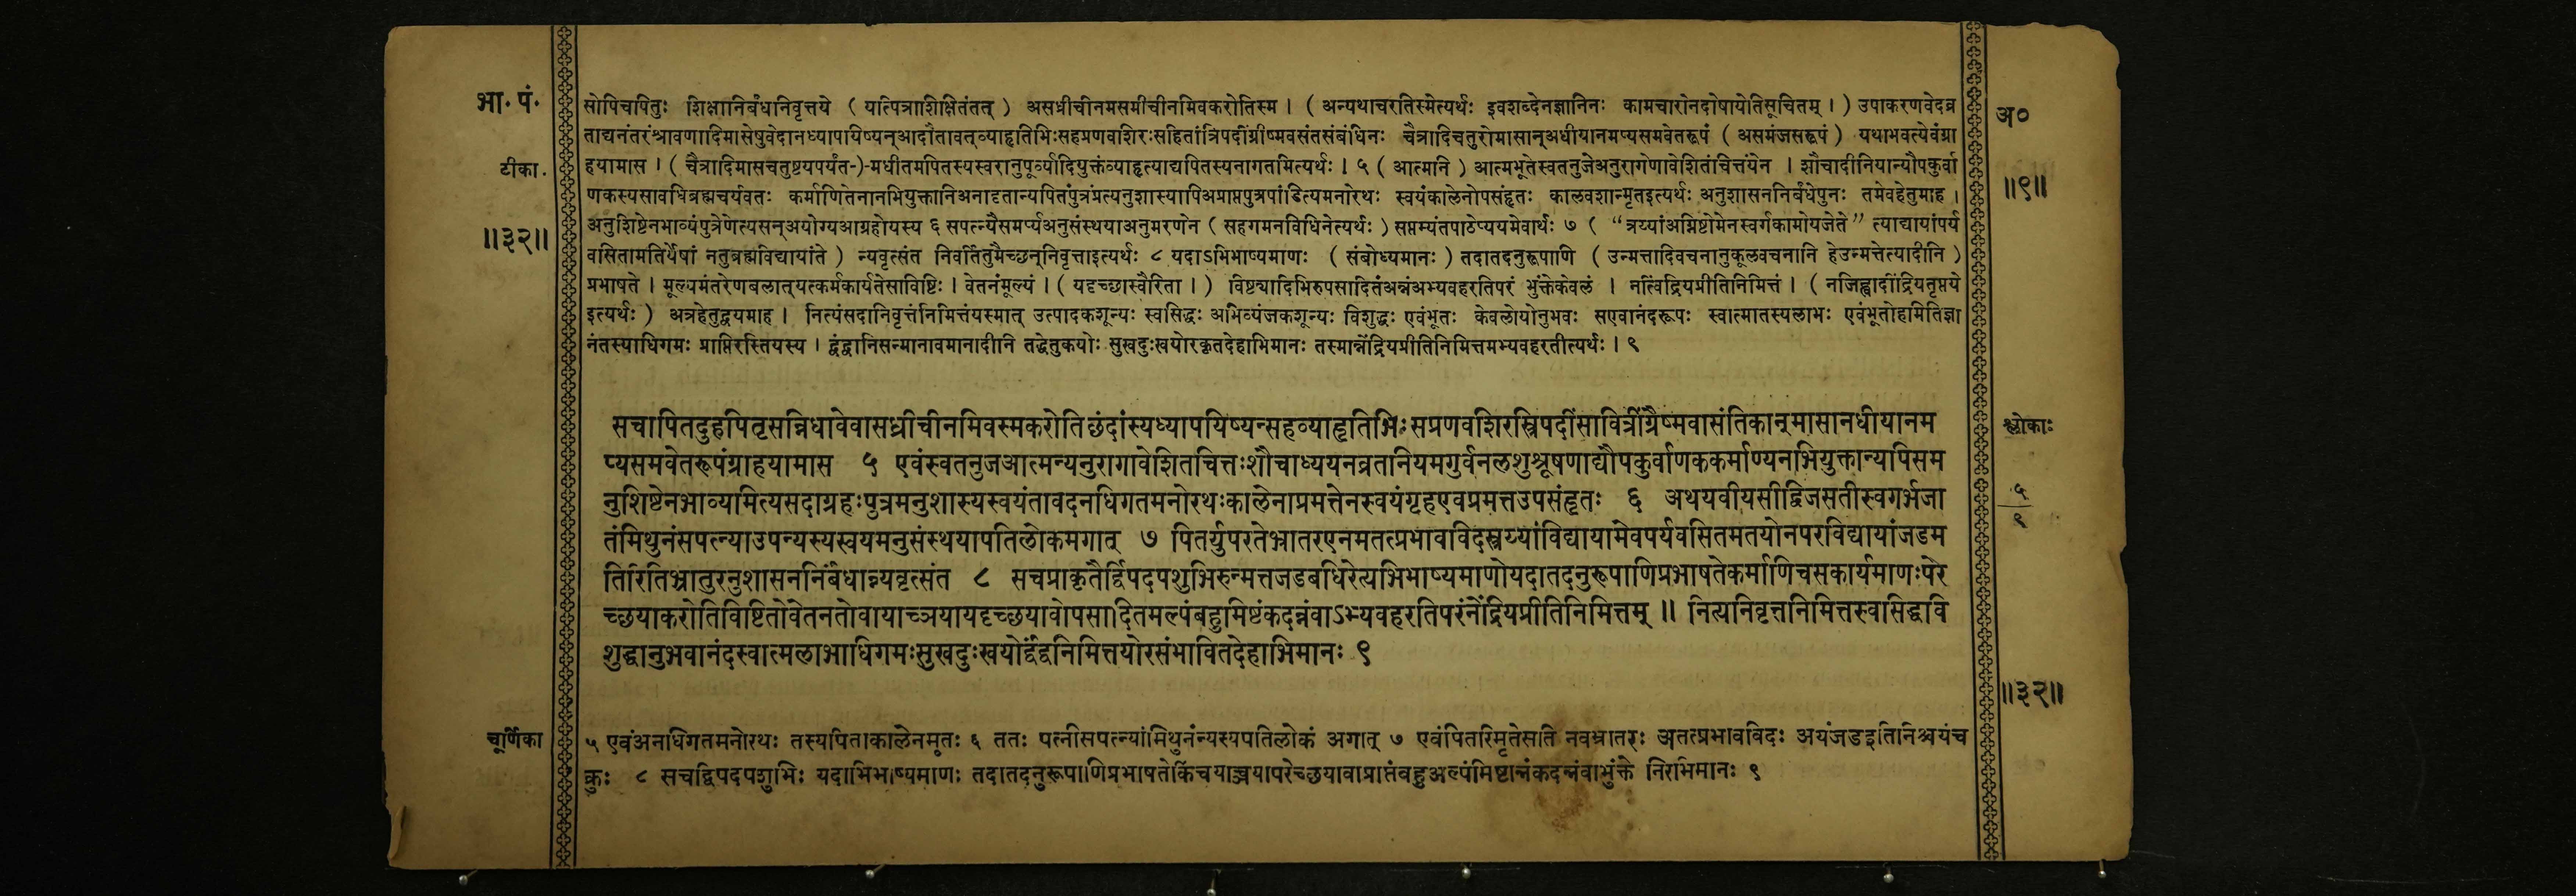 भा. पं.
सोपिचपितुः शिक्षानिर्बंधनिवृत्तये ( यत्पित्राशिक्षितंतत् ) असध्रीचीनमसमीचीनमिवकरोतिस्म । ( अन्यथाचरतिस्मेत्यर्थः इवशब्देनज्ञानिनः कामचारोनदोषायेतिसूचितम् । ) उपाकरणवेदव्र
अ०
ताद्यनंतरंश्रावणादिमासेषुवेदानध्यापायिष्यन्आदौतावत्व्याहृतिभिःसहप्रणवशिरःसहितांत्रिपदींग्रीष्मवसंतसंबंधिनः चैत्रादिचतुरोमासान्अधीयानमप्यसमवेतरूपं ( असमंजसरूपं ) यथाभवत्येवंग्रा
टीका.
हयामास । ( चैत्रादिमासचतुष्टयपर्यंत-)-मधीतमपितस्यस्वरानुपूर्व्यादियुक्तंव्याहृत्याद्यपितस्यनागतमित्यर्थः । ५ ( आत्मानि ) आत्मभूतेस्वतनुजेअनुरागेणावेशितंचित्तंयेन । शौचादीनियान्यौपकुर्वा
॥९॥
णकस्यसावधिब्रह्मचर्यवतः कर्माणितेनानभियुक्तानिअनादृतान्यपितंपुत्रंप्रत्यनुशास्यापिअप्राप्तपुत्रपांडित्यमनोरथः स्वयंकालेनोपसंहृतः कालवशान्मृतइत्यर्थः अनुशासननिर्बंधेपुनः तमेवहेतुमाह ।
॥३२॥
अनुशिष्टेनभाव्यंपुत्रेणेत्यसन्अयोग्यआग्रहोयस्य ६ सपत्न्यैसमर्प्यअनुसंस्थयाअनुमरणेन ( सहगमनविधिनेत्यर्थः ) सप्तम्यंतपाठेप्ययमेवार्थः ७ ( “त्रय्यांअग्निष्टोमेनस्वर्गकामोयजेते” त्याद्यायांपर्य
वसितामतिर्येषां नतुब्रह्मविद्यायांते ) न्यवृत्संत निवर्तितुमैच्छन्निवृत्ताइत्यर्थः ८ यदाऽभिभाष्यमाणः ( संबोध्यमानः ) तदातदनुरूपाणि ( उन्मत्तादिवचनानुकूलवचनानि हेउन्मत्तेत्यादीनि )
प्रभाषते । मूल्यमंतरेणबलात्यत्कर्मकार्यतेसाविष्टिः । वेतनंमूल्यं । ( यदृच्छास्वैरिता । ) विष्ट्यादिभिरुपसादितंअन्नंअभ्यवहरतिपरं भुंक्तेकेवलं । नत्विंद्रियप्रीतिनिमित्तं । ( नजिह्वादींद्रियतृप्तये
इत्यर्थः ) अत्रहेतुद्वयमाह । नित्यंसदानिवृत्तंनिमित्तंयस्मात् उत्पादकशून्यः स्वसिद्धः अभिव्यंजकशून्यः विशुद्धः एवंभूतः केवलोयोनुभवः सएवानंदरूपः स्वात्मातस्यलाभः एवंभूतोहमितिज्ञा
नंतस्याधिगमः प्राप्तिरस्तियस्य । द्वंद्वानिसन्मानावमानादीनि तद्धेतुकयोः सुखदुःखयोरकृतदेहाभिमानः तस्मान्नेंद्रियप्रीतिनिमित्तमभ्यवहरतीत्यर्थः । ९
सचापितदुहपितृसन्निधावेवासध्रीचीनमिवस्मकरोतिछंदांस्यध्यापयिष्यन्सहव्याहृतिभिःसप्रणवशिरस्त्रिपदींसावित्रींग्रैष्मवासंतिकान्मासानधीयानम
श्लोकाः
प्यसमवेतरूपंग्राहयामास ५ एवंस्वतनुजआत्मन्यनुरागावेशितचित्तःशौचाध्ययनव्रतनियमगुर्वनलशुश्रूषणाद्यौपकुर्वाणककर्माण्यनभियुक्तान्यपिसम
नुशिष्टेनभाव्यामित्यसदाग्रहःपुत्रमनुशास्यस्वयंतावदनधिगतमनोरथःकालेनाप्रमत्तेनस्वयंगृहएवप्रमत्तउपसंहृतः ६ अथयवीयसीद्विजसतीस्वगर्भजा
५
९
तंमिथुनंसपत्न्याउपन्यस्यस्वयमनुसंस्थयापतिलोकमगात् ७ पितर्युपरतेभ्रातरएनमतत्प्रभावविदस्त्रय्यांविद्यायामेवपर्यवसितमतयोनपरविद्यायांजडम
तिरितिभ्रातुरनुशासननिर्बंधान्न्यवृत्संत ८ सचप्राकृतैर्द्विपदपशुभिरुन्मत्तजडबधिरेत्यभिभाष्यमाणोयदातदनुरूपाणिप्रभाषतेकर्माणिचसकार्यमाणःपरे
च्छयाकरोतिविष्टितोवेतनतोवायाच्ञयायदृच्छयावोपसादितमल्पंबहुमिष्टंकदन्नंवाऽभ्यवहरतिपरंनेंद्रियप्रीतिनिमित्तम् ॥ नित्यनिवृत्तनिमित्तस्वसिद्धवि
शुद्धानुभवानंदस्वात्मलाभाधिगमःसुखदुःखयोर्द्वंद्वनिमित्तयोरसंभावितदेहाभिमानः ९
॥३२॥
चूर्णिका
५ एवंअनधिगतमनोरथः तस्यपिताकालेनमृतः ६ ततः पत्नीसपत्न्यांमिथुनंन्यस्यपतिलोकं अगात् ७ एवंपितरिमृतेसति नवभ्रातरः अतत्प्रभावविदः अयंजडइतिनिश्चयंच
क्रुः ८ सचद्विपदपशुभिः यदाभिभाष्यमाणः तदातदनुरूपाणिप्रभाषतेकिंचयाञ्चयापरेच्छयावाप्राप्तंबहुअल्पंमिष्टान्नंकदन्नंवाभुंक्ते निरभिमानः ९